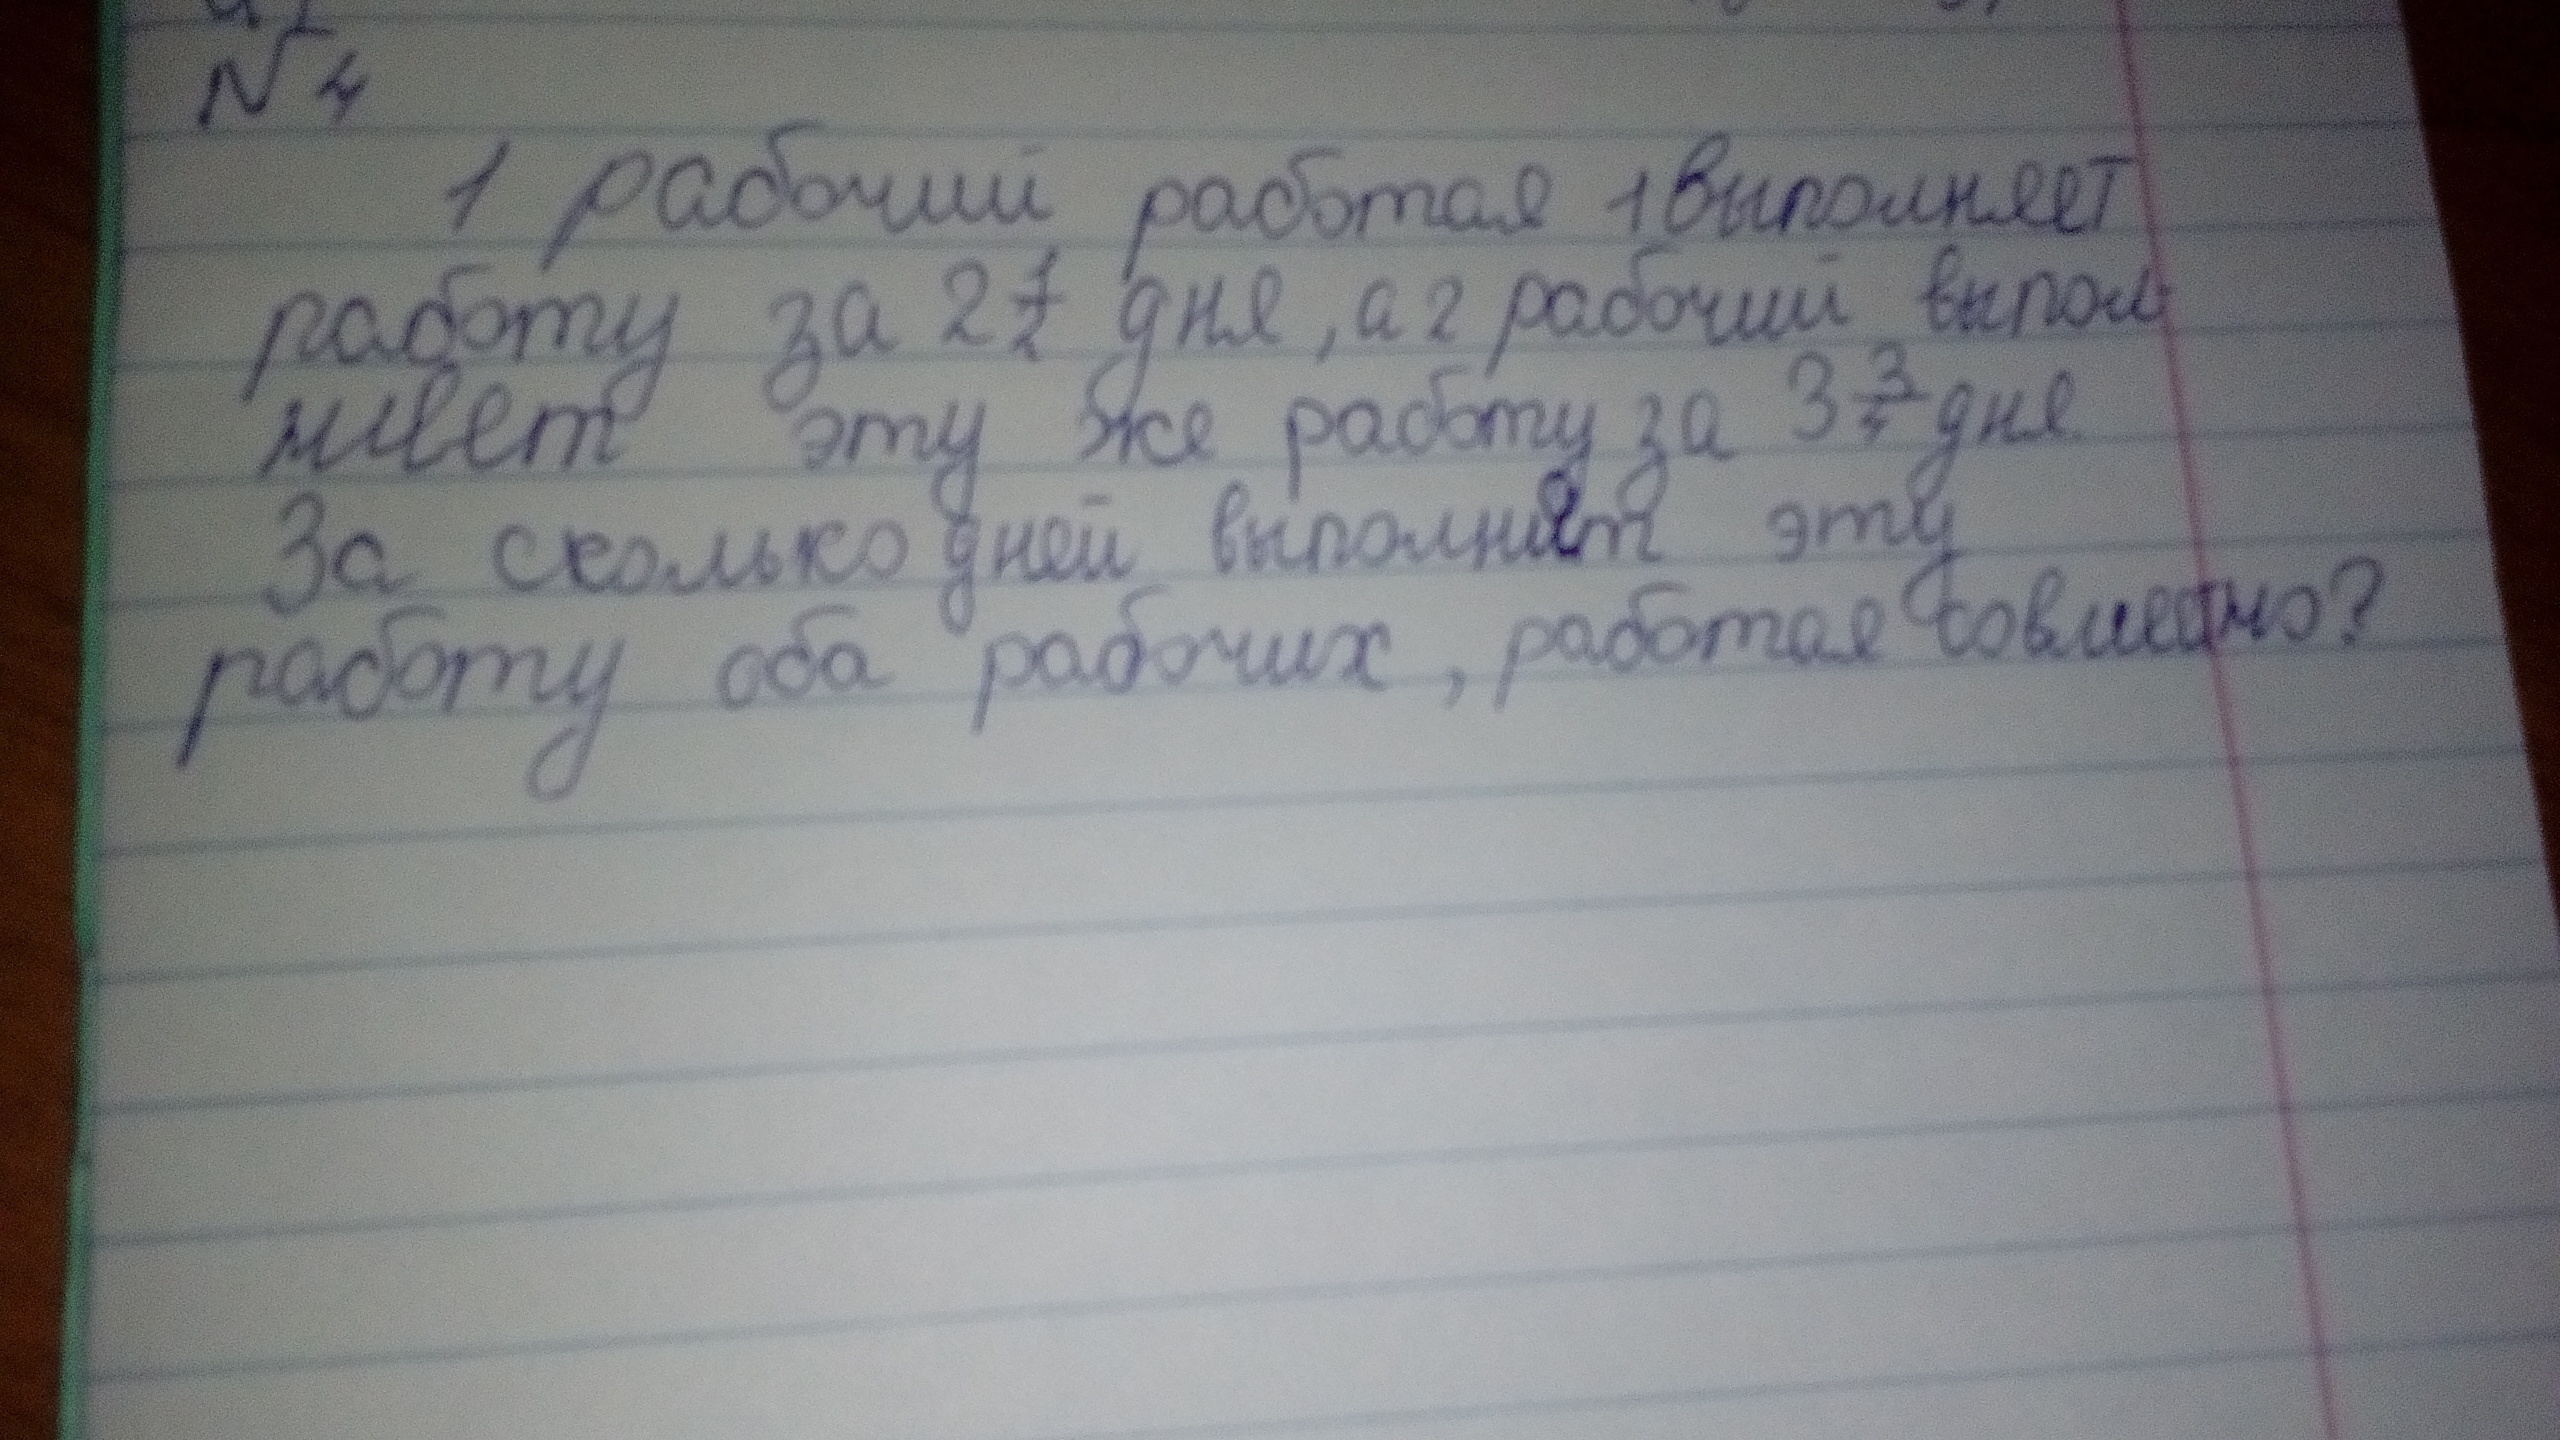 №4
1 рабочий работая 1 выполняет
работу за 2 1/2 дня, а 2 рабочий выпол
няет эту же работу за 3 3/4 дня
За сколько дней выполнят эту
работу оба рабочих, работая совместно?